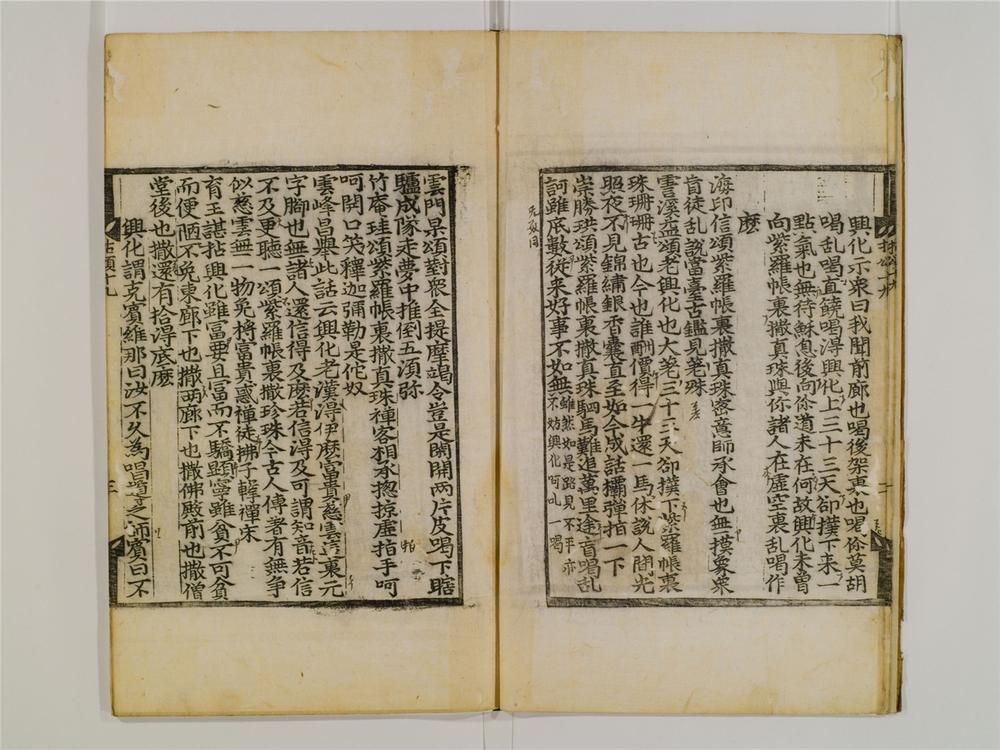 興化示衆曰我聞前廊也喝後架裏也喝你莫胡
喝乱喝直饒喝得興化上三十三天却撲下來一
點氣也無待稣息後向你道未在何故興化未曾
向紫羅帳裏撒真珠與你諸人在虚空裏乱喝作
麽
海印信頌紫羅帳裏撒真珠密意師承會也無摸象衆
盲徒乱說當臺古鑑見茖殊
雲溪益頌老興化也大茖三十三天卻撲下紫羅帳裏
珠珊珊古也今也誰酬價得一牛還一馬休說人間光
照夜不見錦繡銀香囊直至如今成話欛彈指一下
崇勝珙頌紫羅帳裏撒真珠駟馬難追萬里途盲喝乱
訶雖底數從来好事不如無雖然如是路見不平亦
不妨興化呵叱一喝
雲門杲頌對衆全提摩竭令豈是開開兩片皮喝下瞎
驢成隊走夢中推倒五湏弥
竹庵珪頌紫羅帳裏撒真珠禅客相承揔掠虚指手呵
呵開口笑釋迦弥勒是佗奴
雲峰昌舉此話云興化老漢得伊麽富貴慈雲這裏元
字脚也無諸人還信得及麽若信得及可謂知音若信
不及更聽一頌紫羅帳裏撒珍珠今古人傳者有無争
似慈雲無一物免將富貴惑禅徒拂子𨍏禅床
育王諶拈興化雖富要且富而不驕踀寧雖貧不可貧
而便陋不免東廊下也撒兩廊下也撒佛殿前也撒僧
堂後也撒還有拾得底麽
興化謂克賔維那曰汝不久為唱導之師賔曰不
古頌十九
三